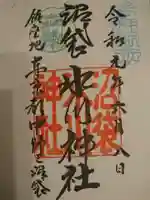 令和元年六月八日
沼袋 氷川神社
鎮座地 東京都中野区沼袋
沼袋
氷川
神社